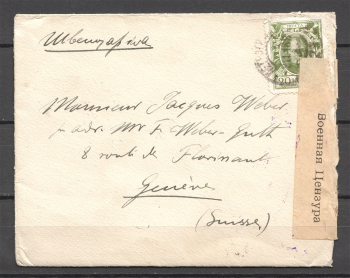 Швейцарія
Monsieur Jacques Weber
p. adr. Mr F. Weber-Gutt
8 route de Florissant
Genève
(Suisse)
Военная Цензура